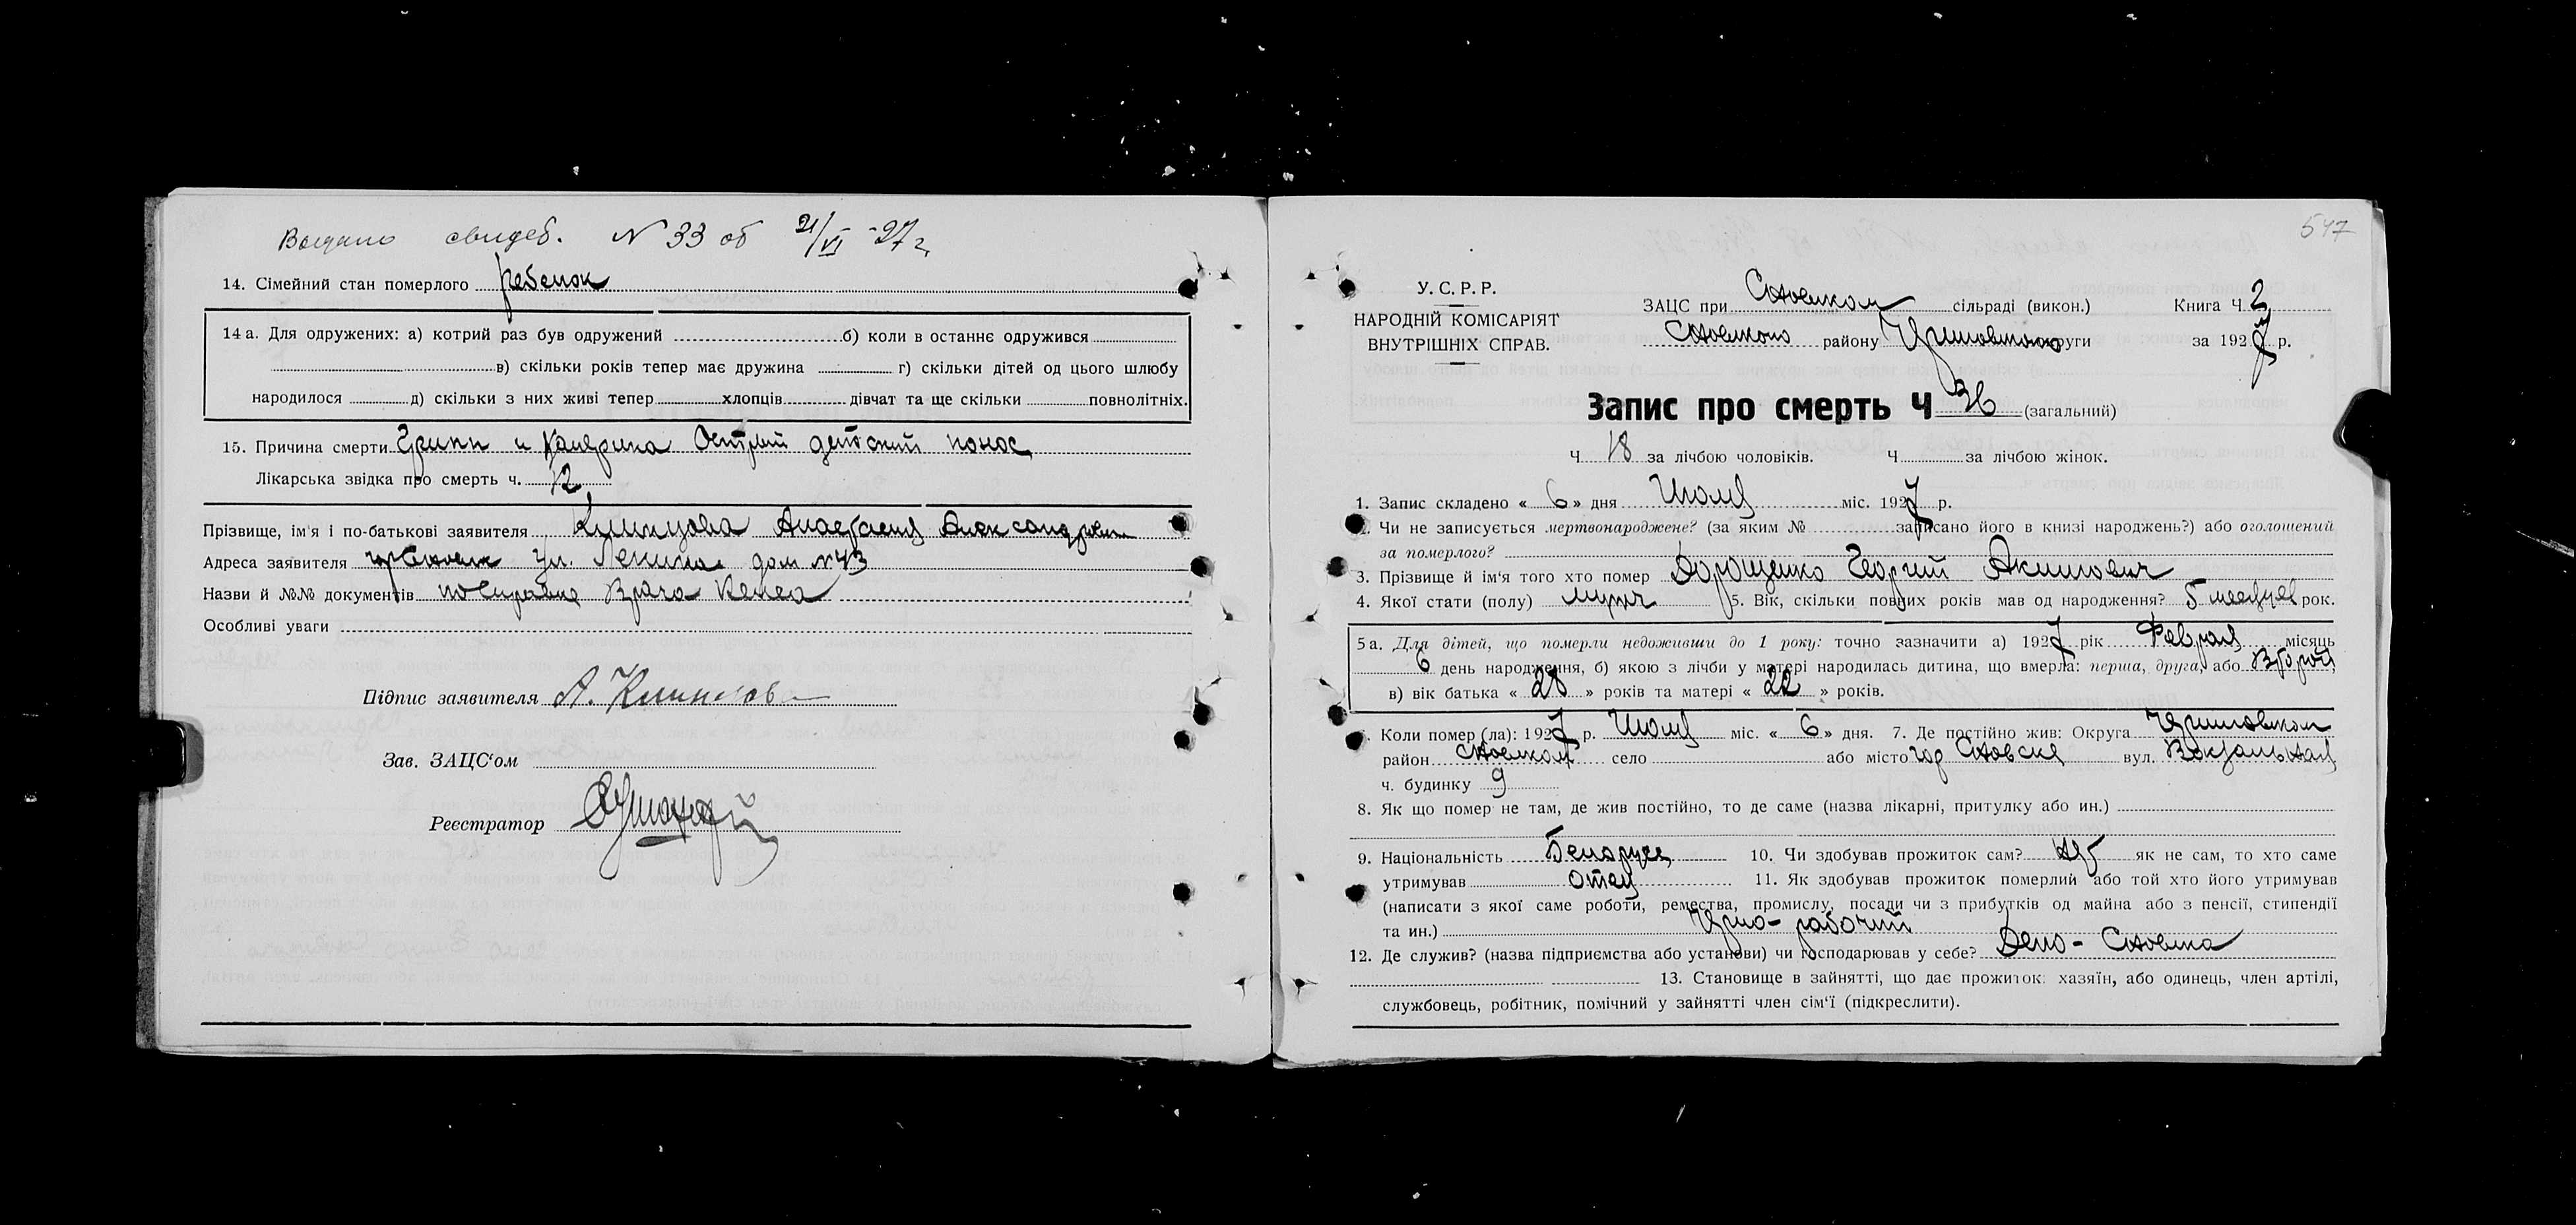 Выдано свидет. N 33 от 21/VI -27 г.
14. Сімейний стан померлого ребенок
14 а. Для одружених: а) котрий раз був одружений б) коли в останнє одружився
в) скільки років тепер має дружина г) скільки дітей од цього шлюбу
народилося д) скільки з них живі тепер хлопців дівчат та ще скільки повнолітніх.
15. Причина смерти Грипп и Острый детский понос
Лікарська звідка про смерть ч. 12
Прізвище, ім'я і по-батькові заявителя Анастасия
Адреса заявителя ул. Ленина дом №43
Назви й №№ документів Врача
Особливі уваги
Підпис заявителя А.
Зав. ЗАЦС'ом
Реєстратор
547
У. С. Р. Р.
НАРОДНІЙ КОМІСАРІЯТ
ВНУТРІШНІХ СПРАВ.
ЗАЦС при сільраді (викон.) Книга Ч 2
району округи за 1927 р.
Запис про смерть Ч 36 (загальний)
Ч 18 за лічбою чоловіків. Ч за лічбою жінок.
1. Запис складено « 6 » дня Июля міс. 1927 р.
2. Чи не записується мертвонароджене? (за яким № записано його в книзі народжень?) або оголошений
за померлого?
3. Прізвище й ім'я того хто помер Дорощенко Георгий Акимович
4. Якої стати (полу) мужч 5. Вік, скільки повних років мав од народження? 5 месяцев рок.
5 а. Для дітей, що померли недоживши до 1 року: точно зазначити а) 1927 рік Февраля місяць
6 день народження, б) якою з лічби у матері народилась дитина, що вмерла: перша, друга, або Второй
в) вік батька « 28 » років та матері « 22 » років.
6. Коли помер (ла): 1927 р. Июля міс. « 6 » дня. 7. Де постійно жив: Округа
район село або місто гор вул. Вокзальная
ч. будинку 9
8. Як що помер не там, де жив постійно, то де саме (назва лікарні, притулку або ин.)
9. Національність Беларусс 10. Чи здобував прожиток сам? нет як не сам, то хто саме
утримував отец 11. Як здобував прожиток померлий або той хто його утримував
(написати з якої саме роботи, ремества, промислу, посади чи з прибутків од майна або з пенсії, стипендії
та ин.) рабочий
12. Де служив? (назва підприємства або установи) чи господарював у себе? Депо -
13. Становище в зайнятті, що дає прожиток: хазяїн, або одинець, член артілі,
службовець, робітник, помічний у зайнятті член сім'ї (підкреслити).